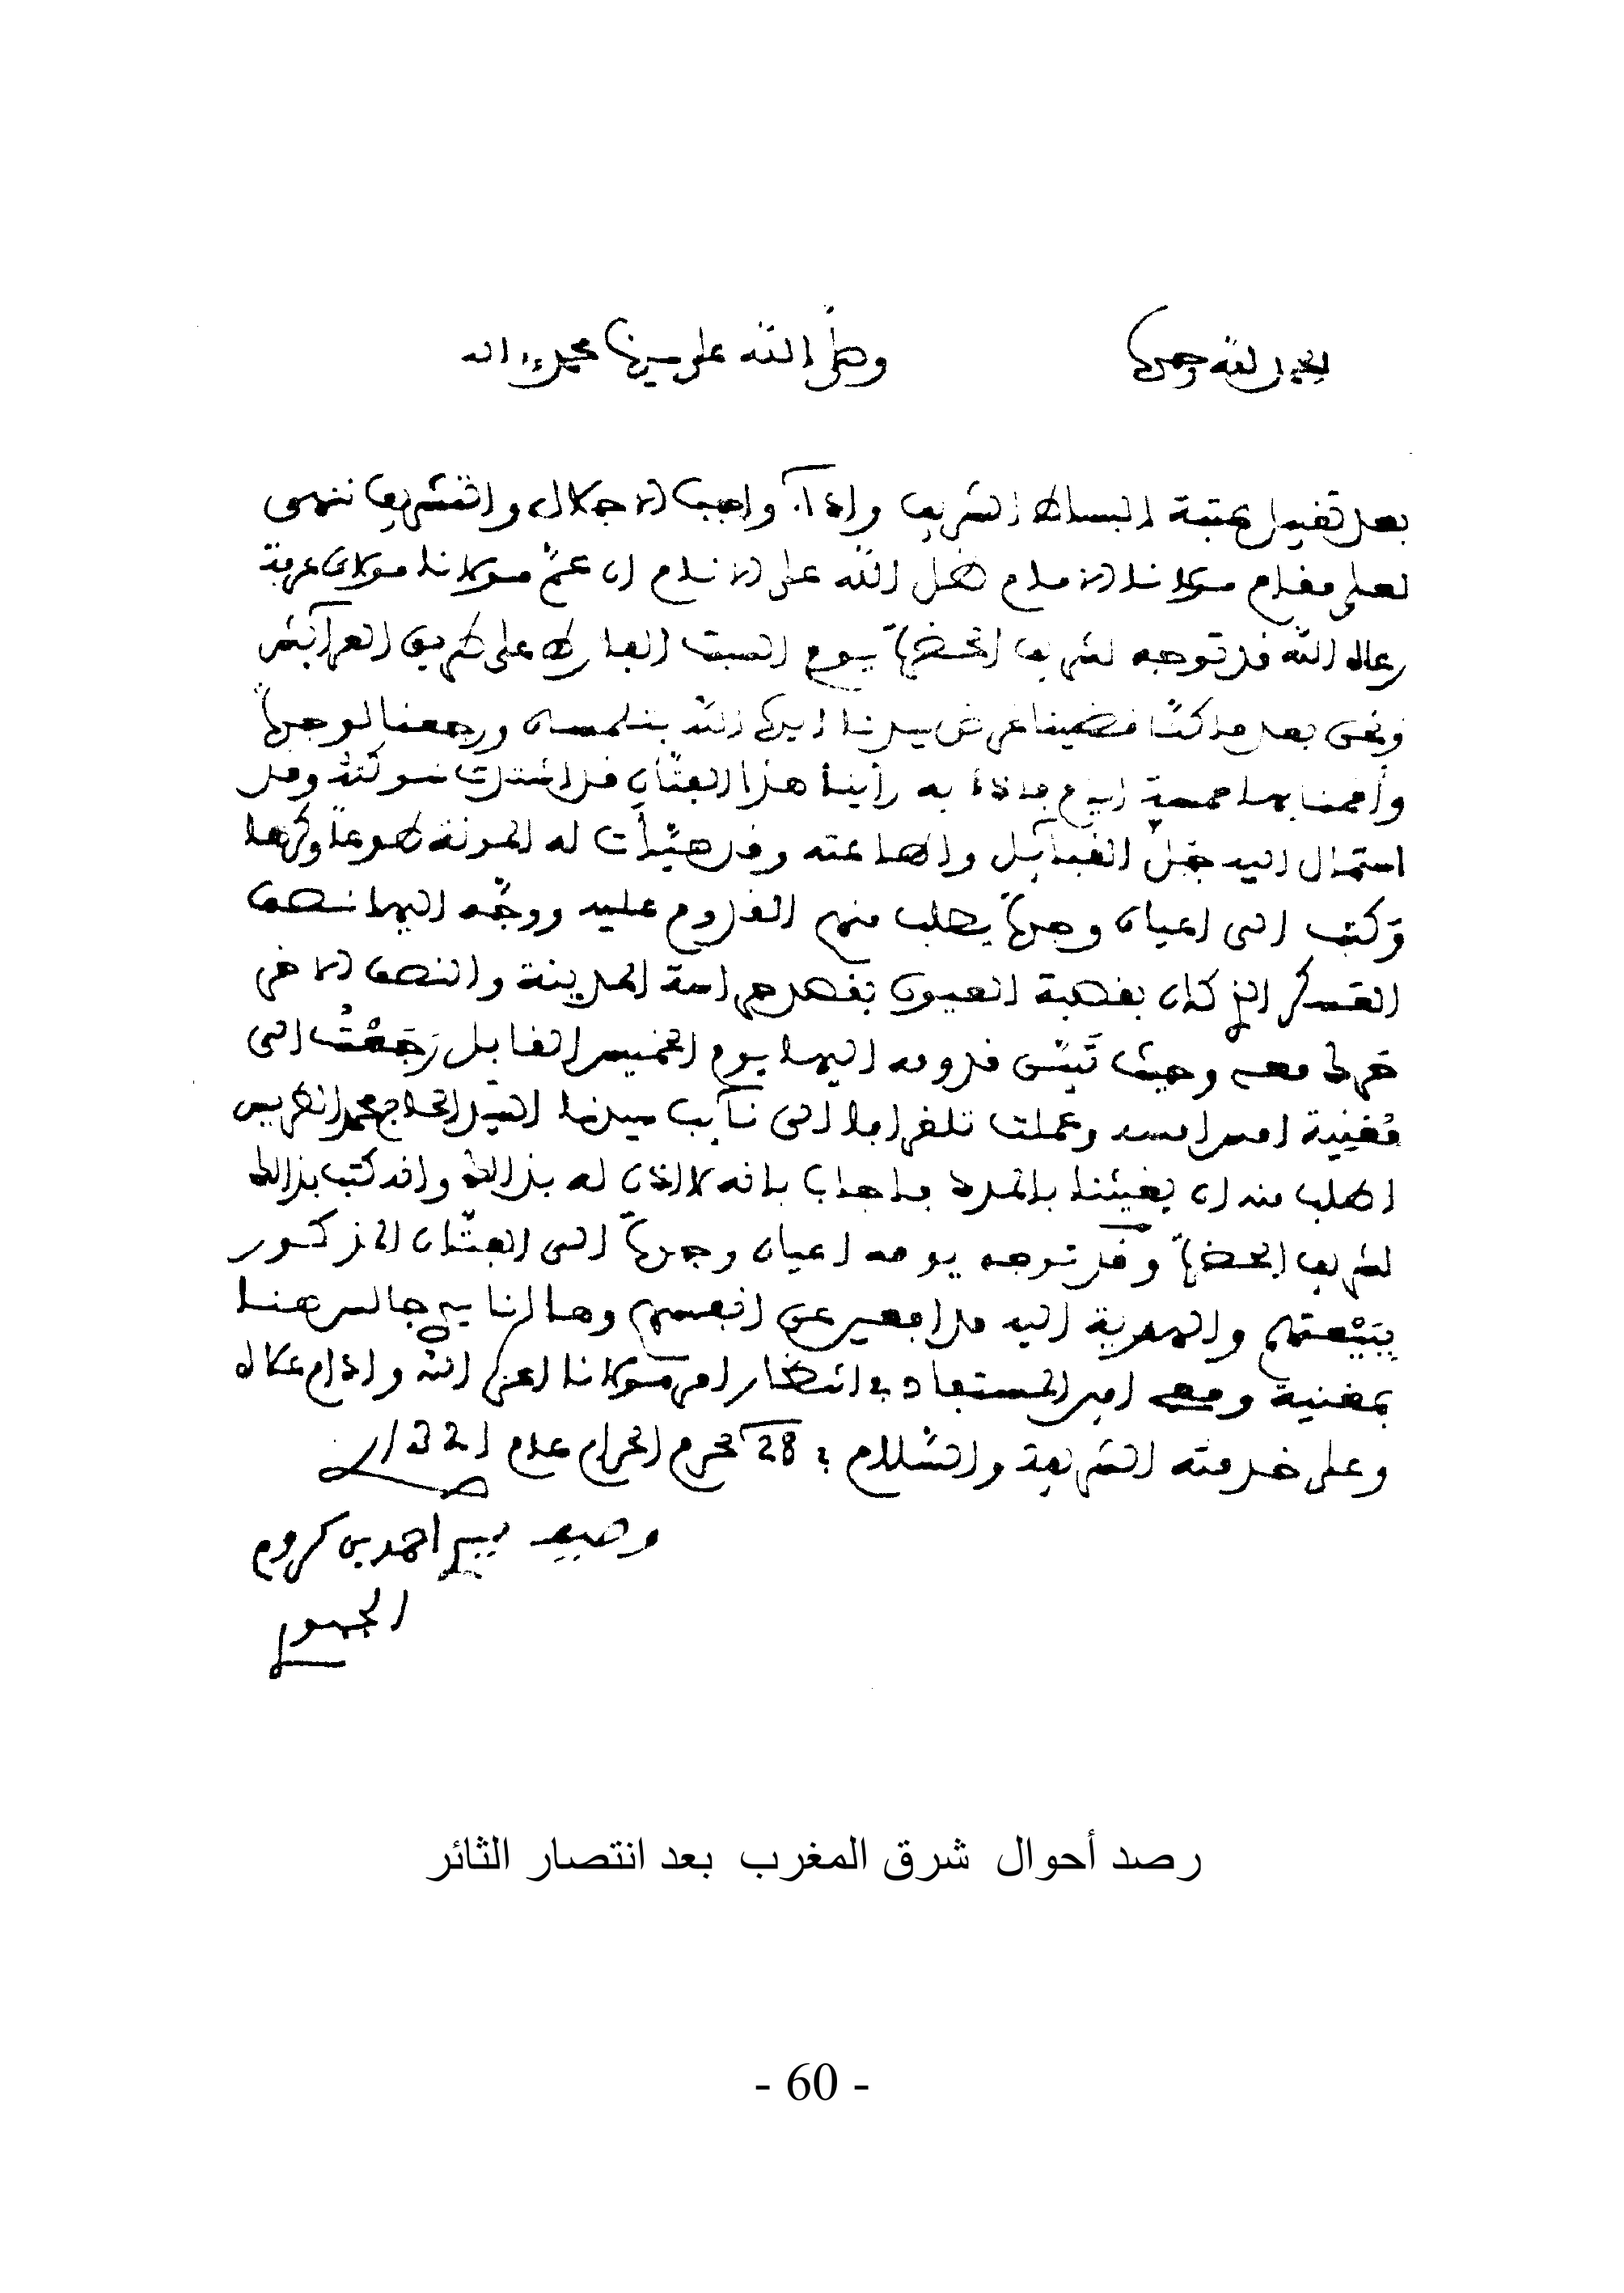 الحمد لله وحده وصلى الله على سيدنا محمد وآله
بعد تقبيل عتبة البساط الشريف واداء واجب الاجلال والتشريف ننهى
لعلى مقام مولانا الامام ظل الله على الانام ان عم مولانا مولاى عرفة
رعاه الله قد توجه لشريف الحضرة يوم السبت الفارط على طريق العرائش
ونحن بعد ما كنا قضينا غرض سيدنا ايده الله بتلمسان ورجعنا لوجدة
وأقمنا بها خمسة ايام فاذا به رأينا هذا الفتان قد اشتدت شوكته وقد
استمال اليه جل القبائل واطاعته وقد هيأت له المونة طوعا وكرها
وكتب الى اعيان وجدة يطلب منهم القدوم عليه ووجه اليها نصف
العسكر الذي كان بقصبة العيون بقصد حراسة المدينة والنصف الاخر
خرط معه وحيث تبين قدومه اليها يوم الخميس القابل رجعت الى
مغنية امس امسه وعملت تلغرافا الى نائب سيدنا السيد الحاج محمد الطريس
اطلب منه ان يغيثنا بالمدد فاجاب بانه لا اذن له بذلك وانه كتب بذلك
لشريف الحضرة وقد توجه يومه اعيان وجدة الى الفتان المذكور
ببيعتهم والهدية اليه مدافعين عن انفسهم وها انا يرجالس هنا
بمغنية ومعى امين المستفاد في انتظار امر مولانا اعزه الله وادام علاه
وعلى خدمته الشريفة والسلام في 28 محرم الحرام عام 1321
وصيف احمد بن كروم
الجبوري
رصد أحوال شرق المغرب بعد انتصار الثائر
- 60 -